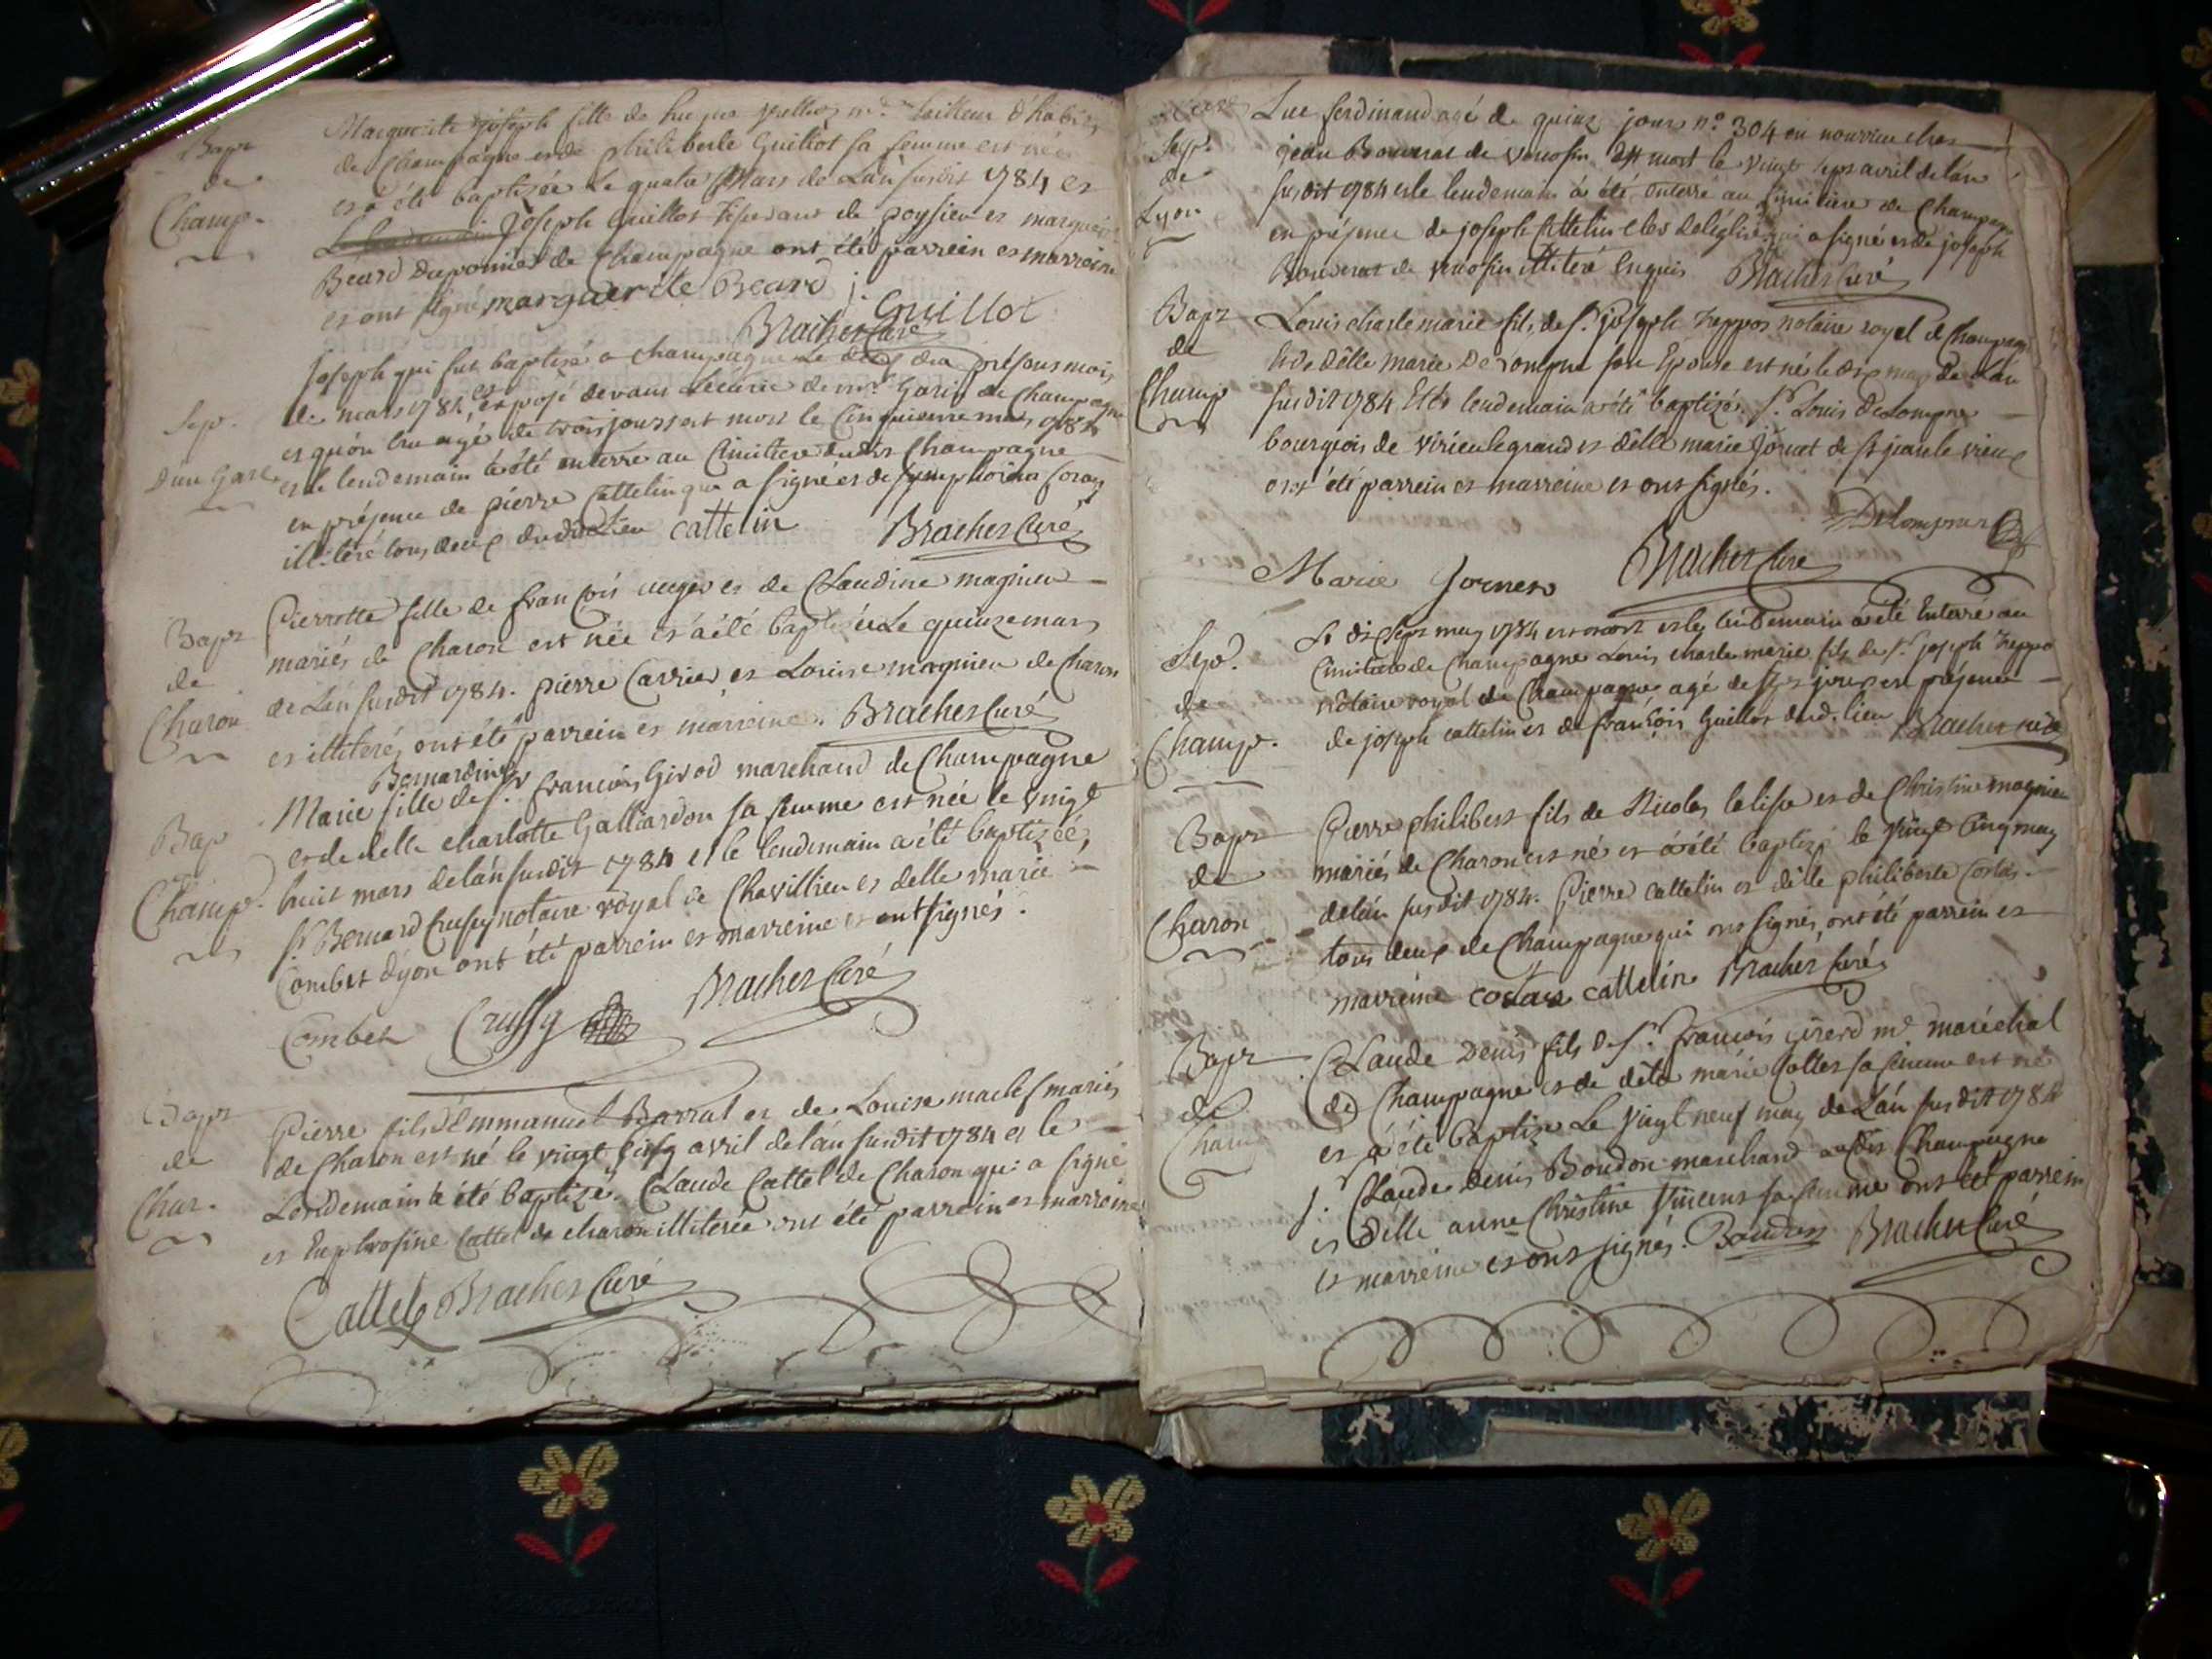 Bapt
de
Champ.
Marguerite joseph fille de hugue vullier md tailleur d'habits
de Champagne et de philiberte Guillot sa femme est née
et a été baptisée Le quatre Mars de L'an susdit 1784 et
joseph Guillot Tisserant de poysieu et marguerite
Béard Duponnier de Champagne ont été parrein et marreine
et ont signé marguerite Beard j. Guillot
Brachet Curé
Sep.
D'un Gare
joseph qui fut baptizé a champagne Le du présent mois
de mars 1784, et exposé devant l'écurie de mr Garin de Champagne
et qu'on cru agé de trois jours est mort le Cinquieme mars 1784
et le lendemain à été enterré au Cimitiere dudit Champagne
en présence de pierre Cattelin qui a signé et de symphorien
illiteré tous deux dudit Lieu cattelin Brachet Curé
Bapt
de
Charon
Pierrotte fille de françois et de Claudine magnieu
mariés de Charon est née et a été baptisée Le quinze mars
de L'an susdit 1784. pierre Carrier et Louise magnieu de Charon
et illiterés ont été parrein et marreine. Brachet Curé
Bap
Champ.
Bernardine
Marie fille de sr françois Girod marchand de Champagne
et de delle charlotte Galliardon sa femme est née le vingt
huit mars de l'an susdit 1784 et le lendemain a été baptizée,
sr Bernard Crussy notaire royal de Chavillieu et delle marie
Combet d'yon ont été parrein et marreine et ont signés.
Combet Crussy Brachet Curé
Bapt
de
Char.
Pierre fils d'Emmanuel Barral et de Louise maclef mariés
de Charon est né le vingt cinq avril de l'an susdit 1784 et le
Lendemain a été baptizé, Claude Cattet de Charon qui a signé
et Euphrosine Cattet de charon illiterée ont été parrein et marreine
Cattet Brachet Curé
Sep.
de
Lyon
Luc ferdinand agé de quinze jours n.º 304 en nourrice ches
jean Bouverat de vénosin est mort le vingt sept avril de l'an
susdit 1784 et le lendemain a été enterré au Cimitiere de Champagne
en présence de joseph Cattelin clec de l'église qui a signé et de joseph
Bouverat de vénosin illiteré Enquis Brachet Curé
Bapt
de
Champ
Louis charle marie fils de sr joseph Treppoz notaire royal de Champagne
et de délle Marie De Lompnar son Epouse est né le dix may de L'an
susdit 1784 Et le lendemain a été baptizé. sr Louis DeLompnar
bourgeois de virieu le grand et délle marie jornet de st jean le vieux
ont été parrein et marreine et ont signés.
DeLompnar
Marie Jornet Brachet Curé
Sep.
de
Champ.
Le dix sept may 1784 est mort et le lendemain a été Enterré au
Cimitiere de Champagne Louis charle marie fils de sr joseph Treppo
notaire royal de Champagne, agé de sept jours en présence
de joseph cattelin et de françois Guillot dud. lieu Brachet curé
Bapt
de
Charon
Pierre philibert fils de Nicolas et de Christine magnieu
mariés de Charon est né et a été baptizé le vingt cinq may
de l'an susdit 1784. Pierre cattelin et délle philiberte Costaz
tous deux de Champagne qui ont signés, ont été parrein et
marreine costaz cattelin Brachet Curé
Bapt
de
Cham
Claude Denis fils de sr françois girerd md maréchal
de Champagne et de délle marie Collet sa femme est né
et a été baptizé Le vingt neuf may de L'an susdit 1784
sr Claude Denis Boudon marchand audit Champagne
et Délle anne Christine Vincent sa femme ont été parrein
et marreine et ont signés. Boudon Brachet Curé